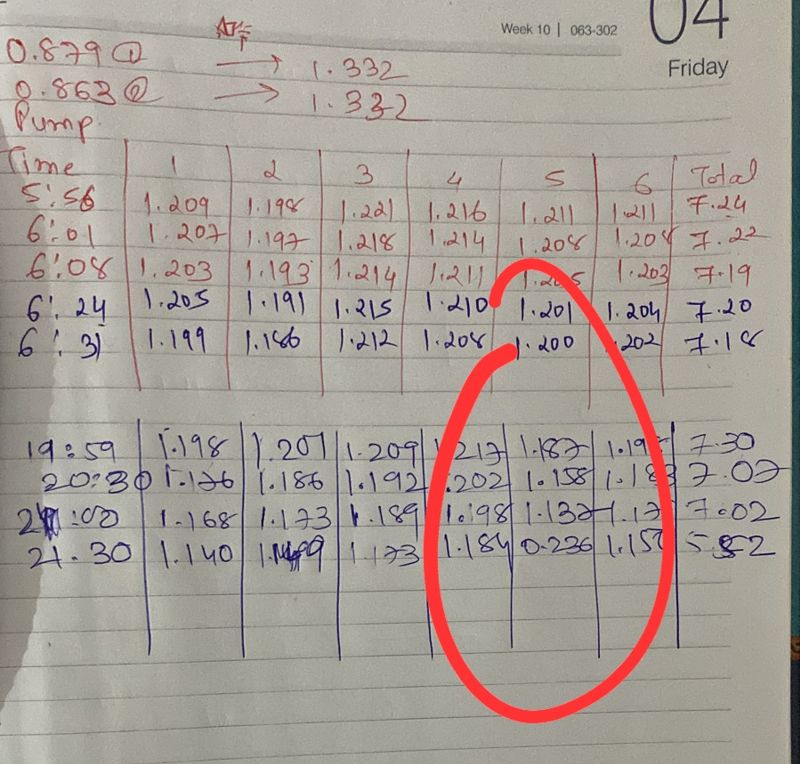 Week 10 | 063-302 04
Friday
0.879 ① → 1.332
0.863 ② → 1.332
Pump
Time 1 2 3 4 5 6 Total
5:56 1.209 1.198 1.221 1.216 1.211 1.211 7.24
6:01 1.207 1.197 1.218 1.214 1.208 1.208 7.22
6:08 1.203 1.193 1.214 1.211 1.205 1.203 7.19
6:24 1.205 1.191 1.215 1.210 1.201 1.204 7.20
6:31 1.199 1.186 1.212 1.208 1.200 1.202 7.18
19:59 1.198 1.201 1.209 1.217 1.187 7.30
20:30 1.176 1.186 1.192 1.202 1.158 1.183 7.07
:00 1.168 1.173 1.189 1.198 1.137 7.02
21.30 1.140 1.173 1.184 0.236